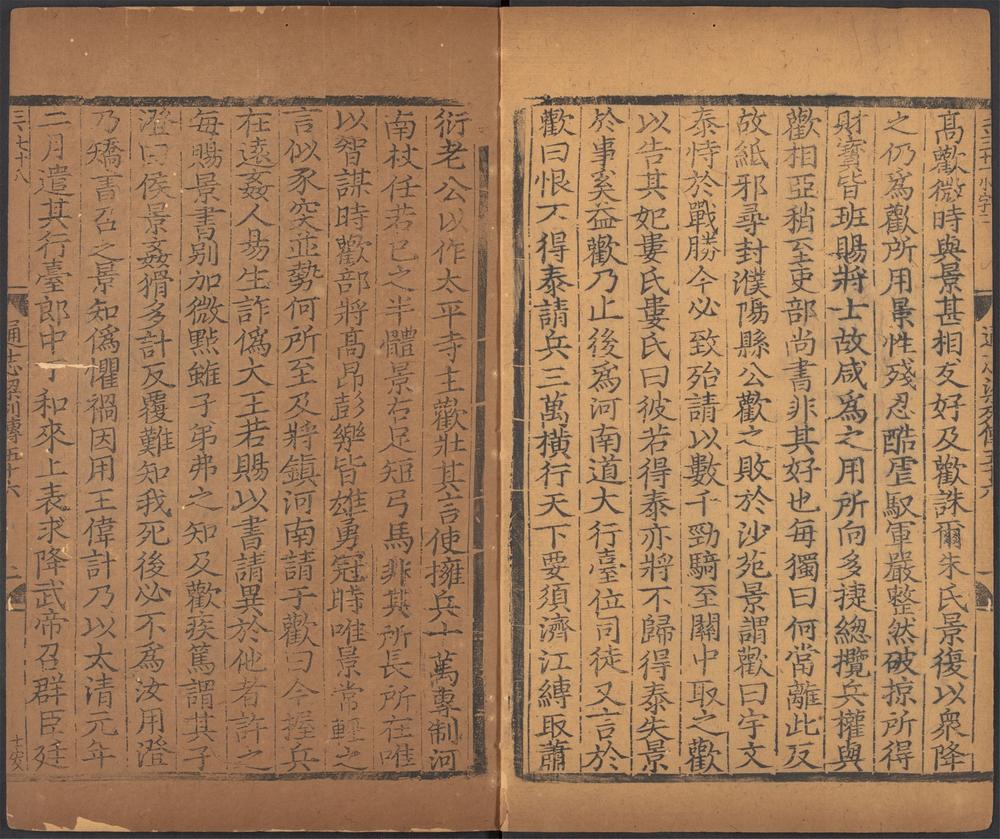 高歡微時與景甚相友好及歡誅爾朱氏景復以衆降
之仍爲歡所用景性殘忍酷虐馭軍嚴整然破掠所得
財寶皆班賜將士故咸爲之用所向多捷總攬兵權與
歡相亞稍至吏部尚書非其好也每獨曰何當離此反
故紙邪尋封濮陽縣公歡之敗於沙苑景謂歡曰宇文
泰恃於戰勝今必致殆請以數千勁騎至關中取之歡
以告其妃婁氏婁氏曰彼若得泰亦將不歸得泰失景
於事奚益歡乃止後爲河南道大行臺位司徒又言於
歡曰恨不得泰請兵三萬橫行天下要須濟江縛取蕭
衍老公以作太平寺主歡壯其言使擁兵十萬專制河
南杖任若己之半體景右足短弓馬非其所長所在唯
以智謀時歡部將高昂彭樂皆雄勇冠時唯景常輕之
言似豕突並勢何所至及將鎮河南請于歡曰今握兵
在遠姦人易生詐僞大王若賜以書請異於他者許之
每賜景書别加微點雖子弟弗之知及歡疾篤謂其子
澄曰侯景姦猾多計反覆難知我死後必不爲汝用澄
乃矯書召之景知僞懼禍因用王偉計乃以太清元年
二月遣其行臺郎中丁和來上表求降武帝召群臣廷
通志梁列傳五十六
二